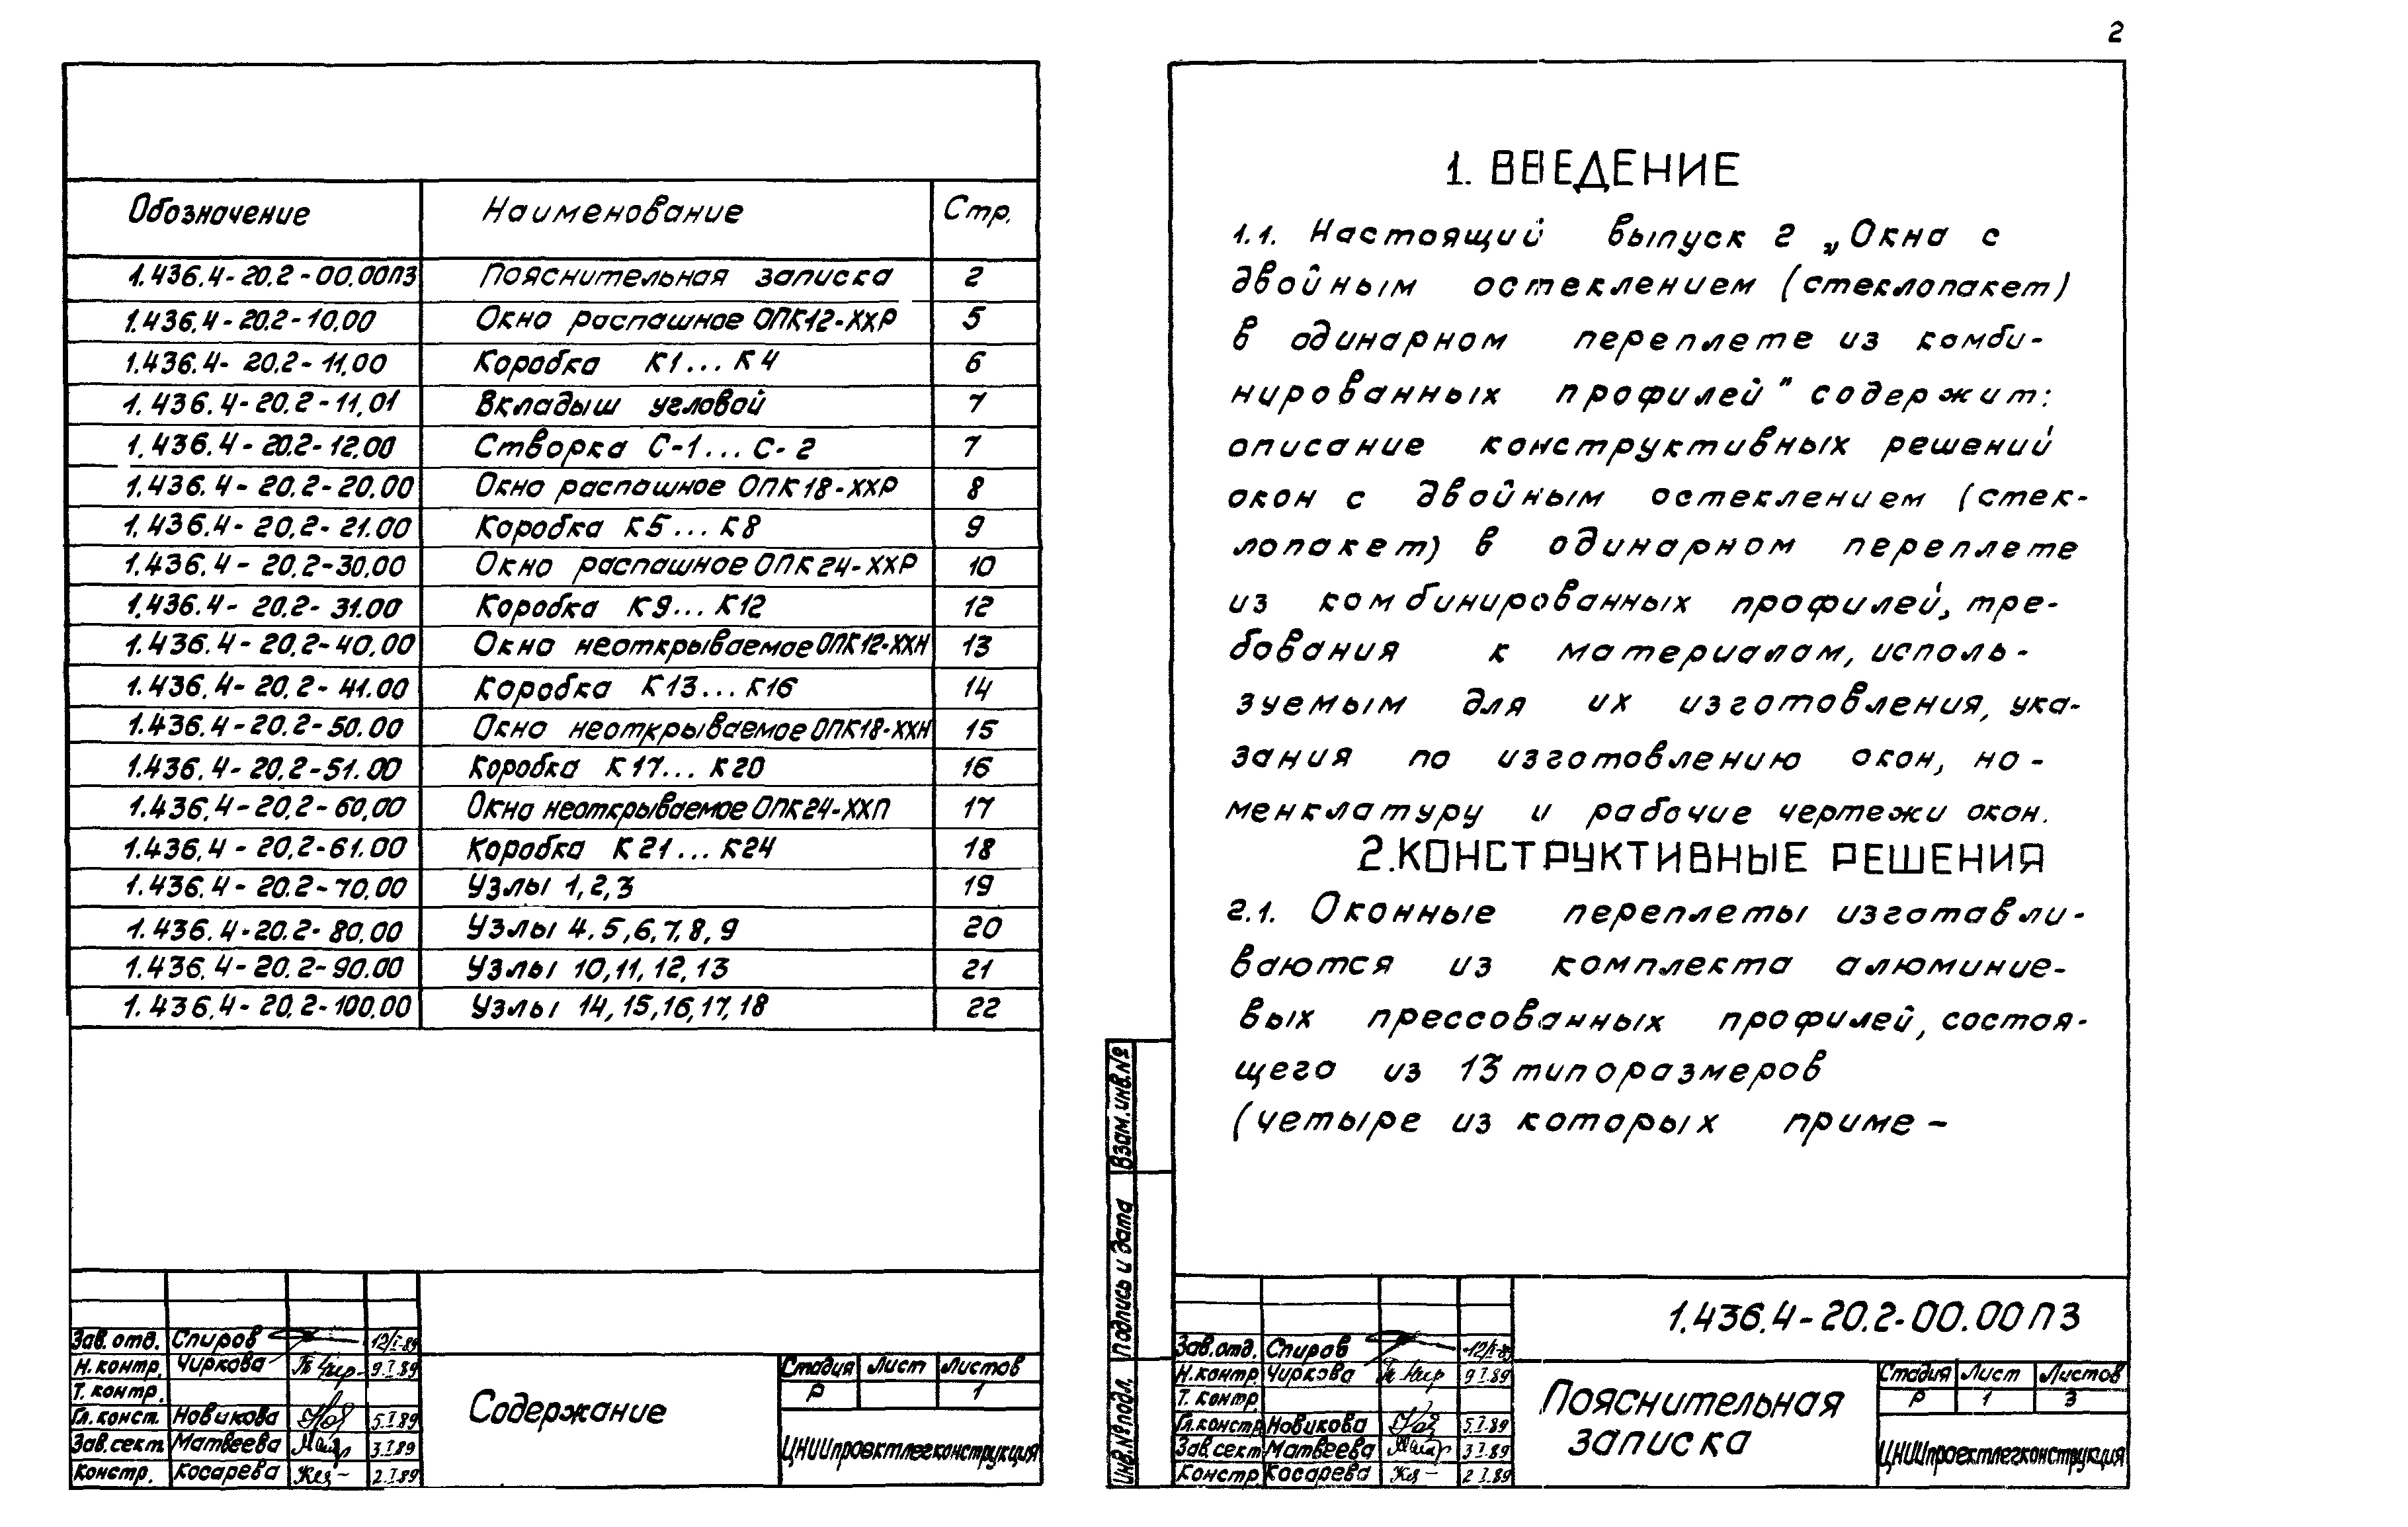 2
Обозначение Наименование Стр.
1.436.4-20.2-00.00ПЗ Пояснительная записка 2
1.436.4-20.2-10.00 Окно распашное ОПК12-ХХР 5
1.436.4-20.2-11.00 Коробка К1...К4 6
1.436.4-20.2-11.01 Вкладыш угловой 7
1.436.4-20.2-12.00 Створка С-1...С-2 7
1.436.4-20.2-20.00 Окно распашное ОПК18-ХХР 8
1.436.4-20.2-21.00 Коробка К5...К8 9
1.436.4-20.2-30.00 Окно распашное ОПК24-ХХР 10
1.436.4-20.2-31.00 Коробка К9...К12 12
1.436.4-20.2-40.00 Окно неоткрываемое ОПК12-ХХН 13
1.436.4-20.2-41.00 Коробка К13...К16 14
1.436.4-20.2-50.00 Окно неоткрываемое ОПК18-ХХН 15
1.436.4-20.2-51.00 Коробка К17...К20 16
1.436.4-20.2-60.00 Окно неоткрываемое ОПК24-ХХП 17
1.436.4-20.2-61.00 Коробка К21...К24 18
1.436.4-20.2-70.00 Узлы 1,2,3 19
1.436.4-20.2-80.00 Узлы 4,5,6,7,8,9 20
1.436.4-20.2-90.00 Узлы 10,11,12,13 21
1.436.4-20.2-100.00 Узлы 14,15,16,17,18 22
Зав.отд. Спиров 12/I-89
Н.контр. Чиркова 9.I.89
Т.контр.
Гл.конст. Новикова 5.I.89
Зав.сект. Матвеева 3.I.89
Констр. Косарева 2.I.89
Содержание
Стадия Лист Листов
Р 1
ЦНИИпроектлегконструкция
1. ВВЕДЕНИЕ
1.1. Настоящий выпуск 2 „Окна с
двойным остеклением (стеклопакет)
в одинарном переплете из комби-
нированных профилей" содержит:
описание конструктивных решений
окон с двойным остеклением (стек-
лопакет) в одинарном переплете
из комбинированных профилей, тре-
бования к материалам, исполь-
зуемым для их изготовления, ука-
зания по изготовлению окон, но-
менклатуру и рабочие чертежи окон.
2. КОНСТРУКТИВНЫЕ РЕШЕНИЯ
2.1. Оконные переплеты изготавли-
ваются из комплекта алюминие-
вых прессованных профилей, состоя-
щего из 13 типоразмеров
(четыре из которых приме-
Взам.инв.№
Подпись и дата
Инв.№подл.
Зав.отд. Спиров 12/I-89
Н.контр. Чиркова 9 I.89
Т.контр.
Гл.констр Новикова 5.I.89
Зав.сект Матвеева 3 I.89
Констр. Косарева 2 I.89
1.436.4-20.2-00.00ПЗ
Пояснительная
записка
Стадия Лист Листов
Р 1 3
ЦНИИпроектлегконструкция